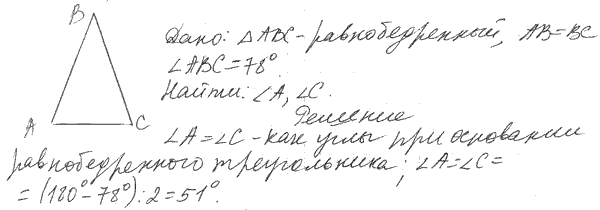 B
Дано: △ABC - равнобедренный, AB=BC
∠ABC=78°.
Найти: ∠A, ∠C.
Решение
A C
∠A=∠C - как углы при основании
равнобедренного треугольника; ∠A=∠C=
=(180°-78°):2=51°.